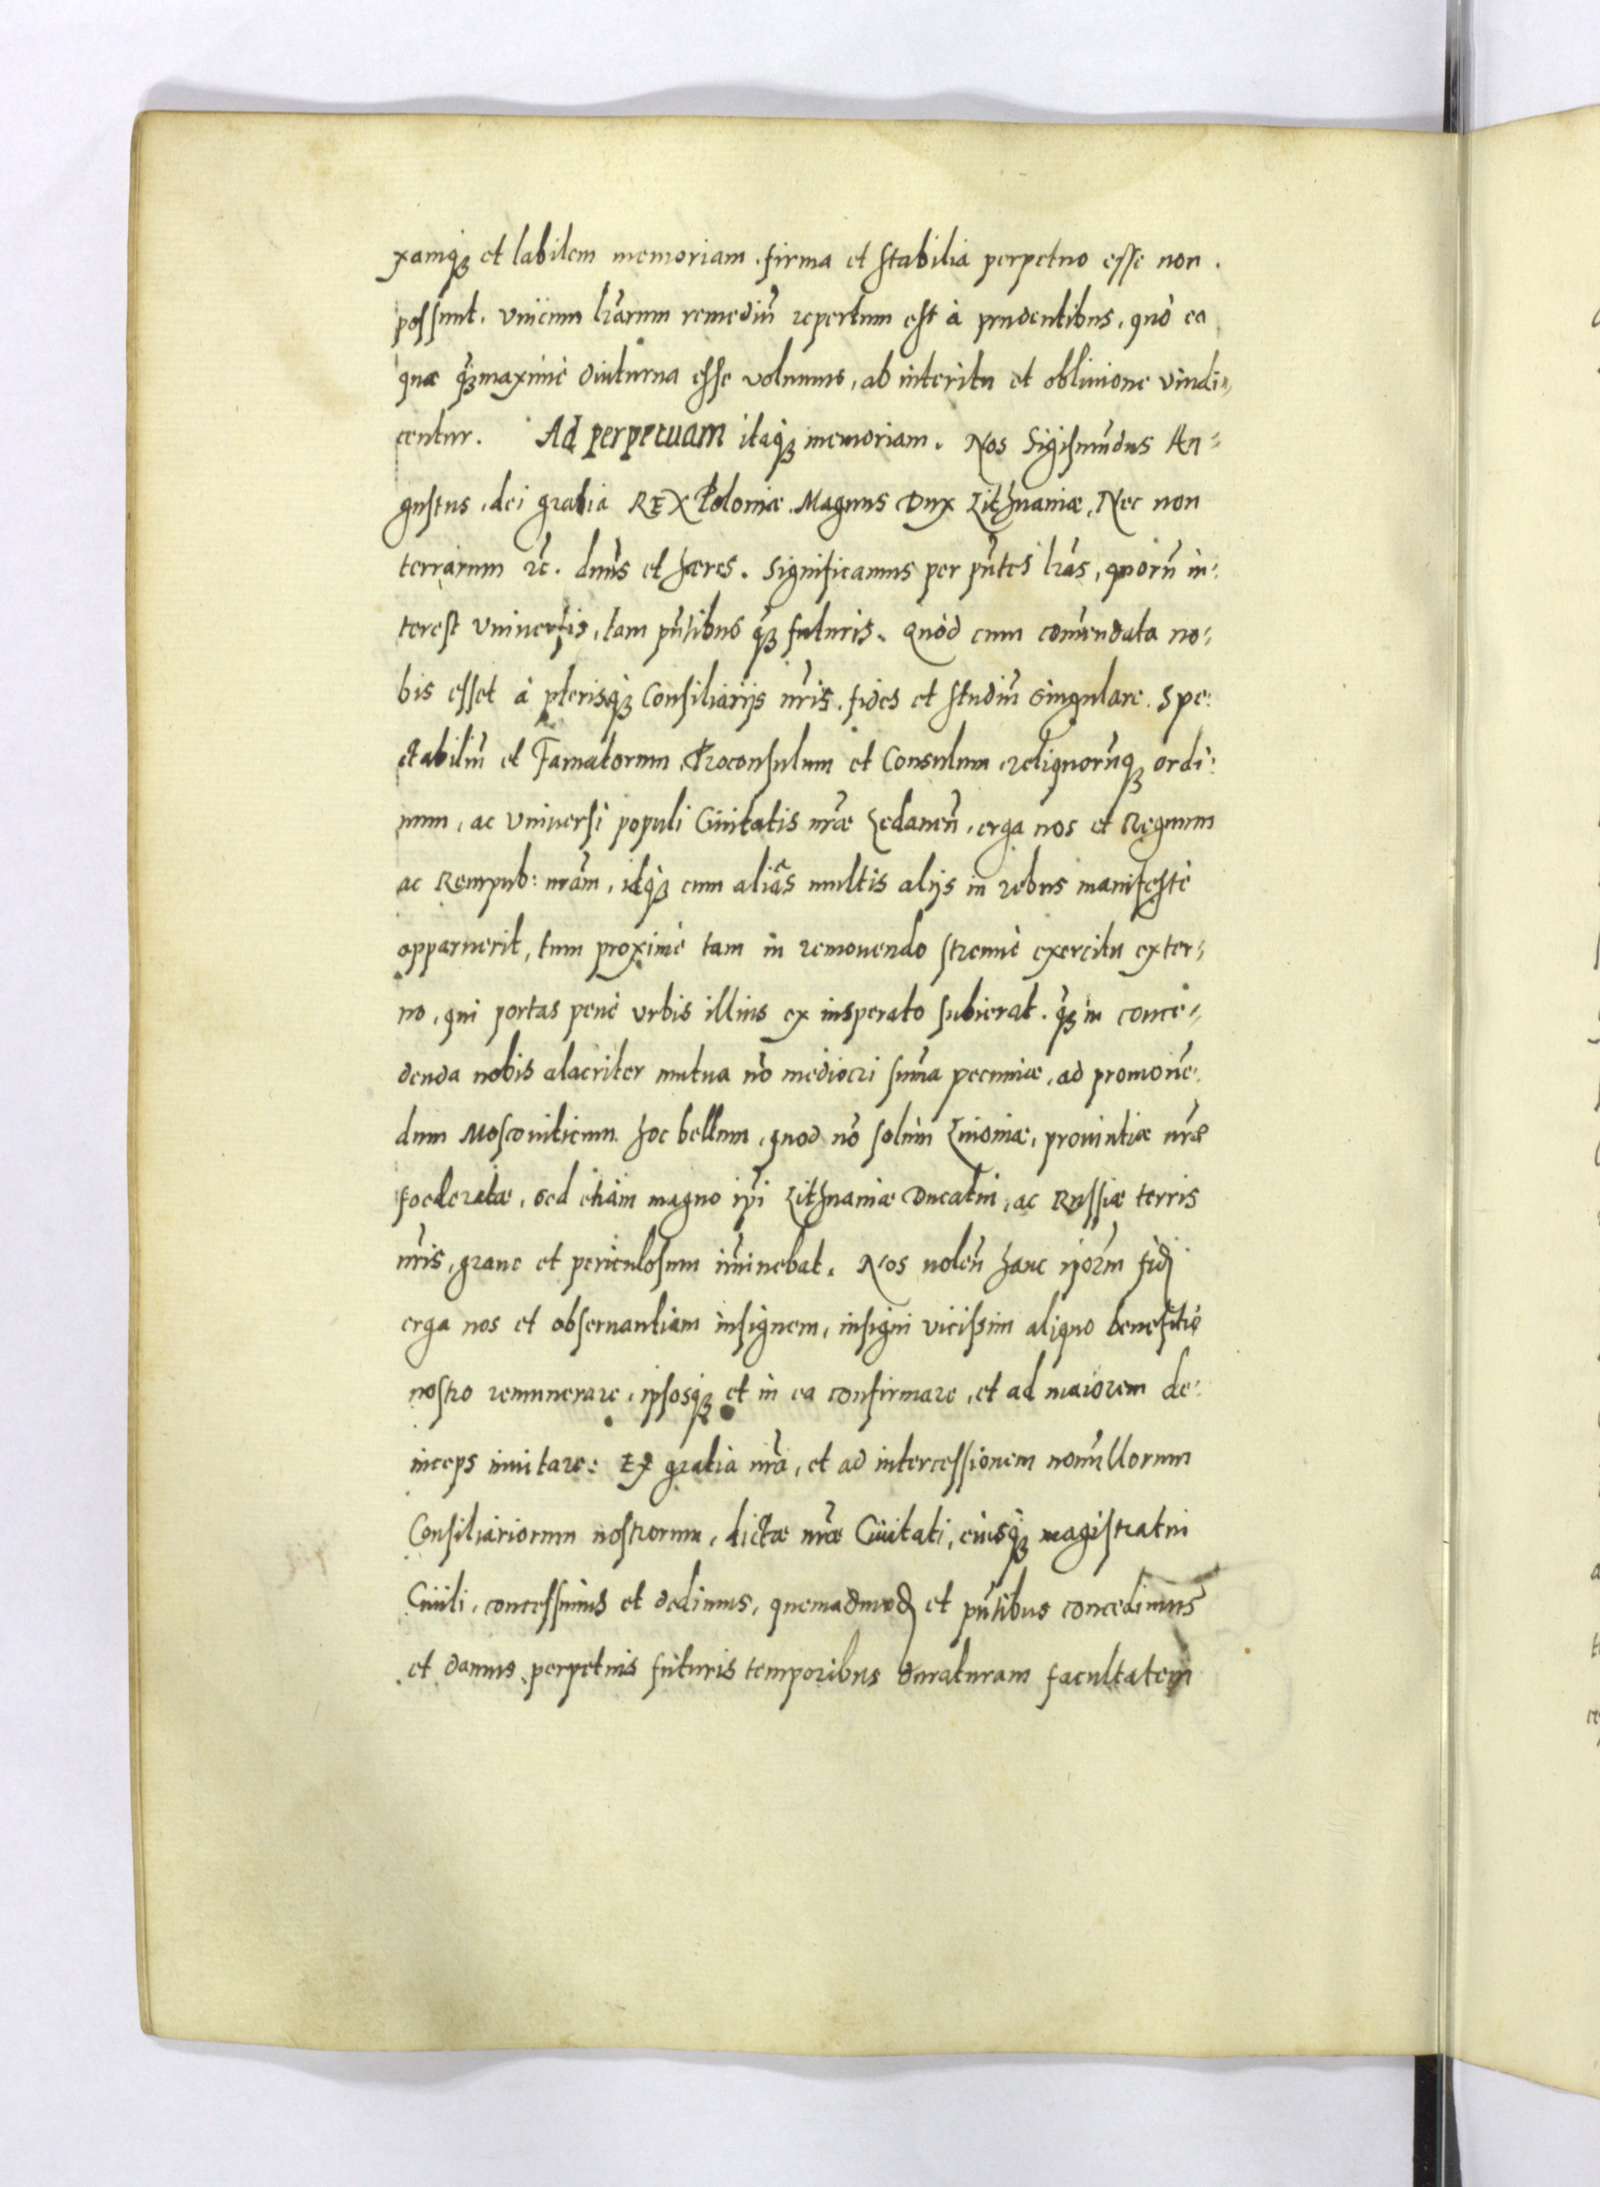 xamqꝫ et labilem memoriam, firma et stabilia perpetuo esse non
possunt, vnicum lr̃arum remediũ repertum est à prudentibus, quò ea
quæ q̃ꝫmaximè diuturna esse volumus, ab interitu et obliuione vindi-
centur. Ad perpetuam itaqꝫ memoriam. Nos Sigismũdus Au-
gustus, dei gratia REX Poloniæ. Magnus Dux Lithuaniæ, Nec non
terrarum ꝛc̃. dnũs et hæres. Significamus per pñtes lr̃as, quorũ in-
terest vniuersis, tam pñtibus q̃ꝫ futuris. Quòd cum com̃endata no-
bis esset à plerisqꝫ Consiliarijs nr̃is, fides et studiũ singulare. Spe-
ctabiliũ et Famatorum Proconsulum et Consulum reliquorũqꝫ ordi-
num, ac vniuersi populi Ciuitatis nr̃æ Gedaneñ, erga nos et Regnum
ac Rempub: nr̃am, idqꝫ cum aliâs multis alijs in rebus manifestè
apparuerit, tum proximè tam in remouendo strenuè exercitu exter-
no, qui portas penè vrbis illius ex insperato subierat. q̃ꝫ in conce-
denda nobis alacriter mutua nõ mediocri sum̃a pecuniæ, ad promouẽ-
dum Moscouiticum hoc bellum, quod nõ solùm Liuoniæ, prouintiæ nr̃æ
foederatæ, sed etiàm magno ip̃i Lithuaniæ Ducatui, ac Russiæ terris
nr̃is, graue et periculosum im̃inebat. Nos uoleñ hanc ip̃orũm fidẽ
erga nos et obseruantiam insignem, insigni vicissim aliquo benefitio
nostro remunerare, ipsosqꝫ et in ea confirmare, et ad maiorem de-
inceps inuitare: Ex gratia nr̃a, et ad intercessionem non̄ullorum
Consiliariorum nostrorum, dictæ nr̃æ Ciuitati, eiusqꝫ magistratui
Ciuili, concessimus et dedimus, quemadmodũ et pñtibus concedimus
et damus perpetuis futuris temporibus duraturam facultatem